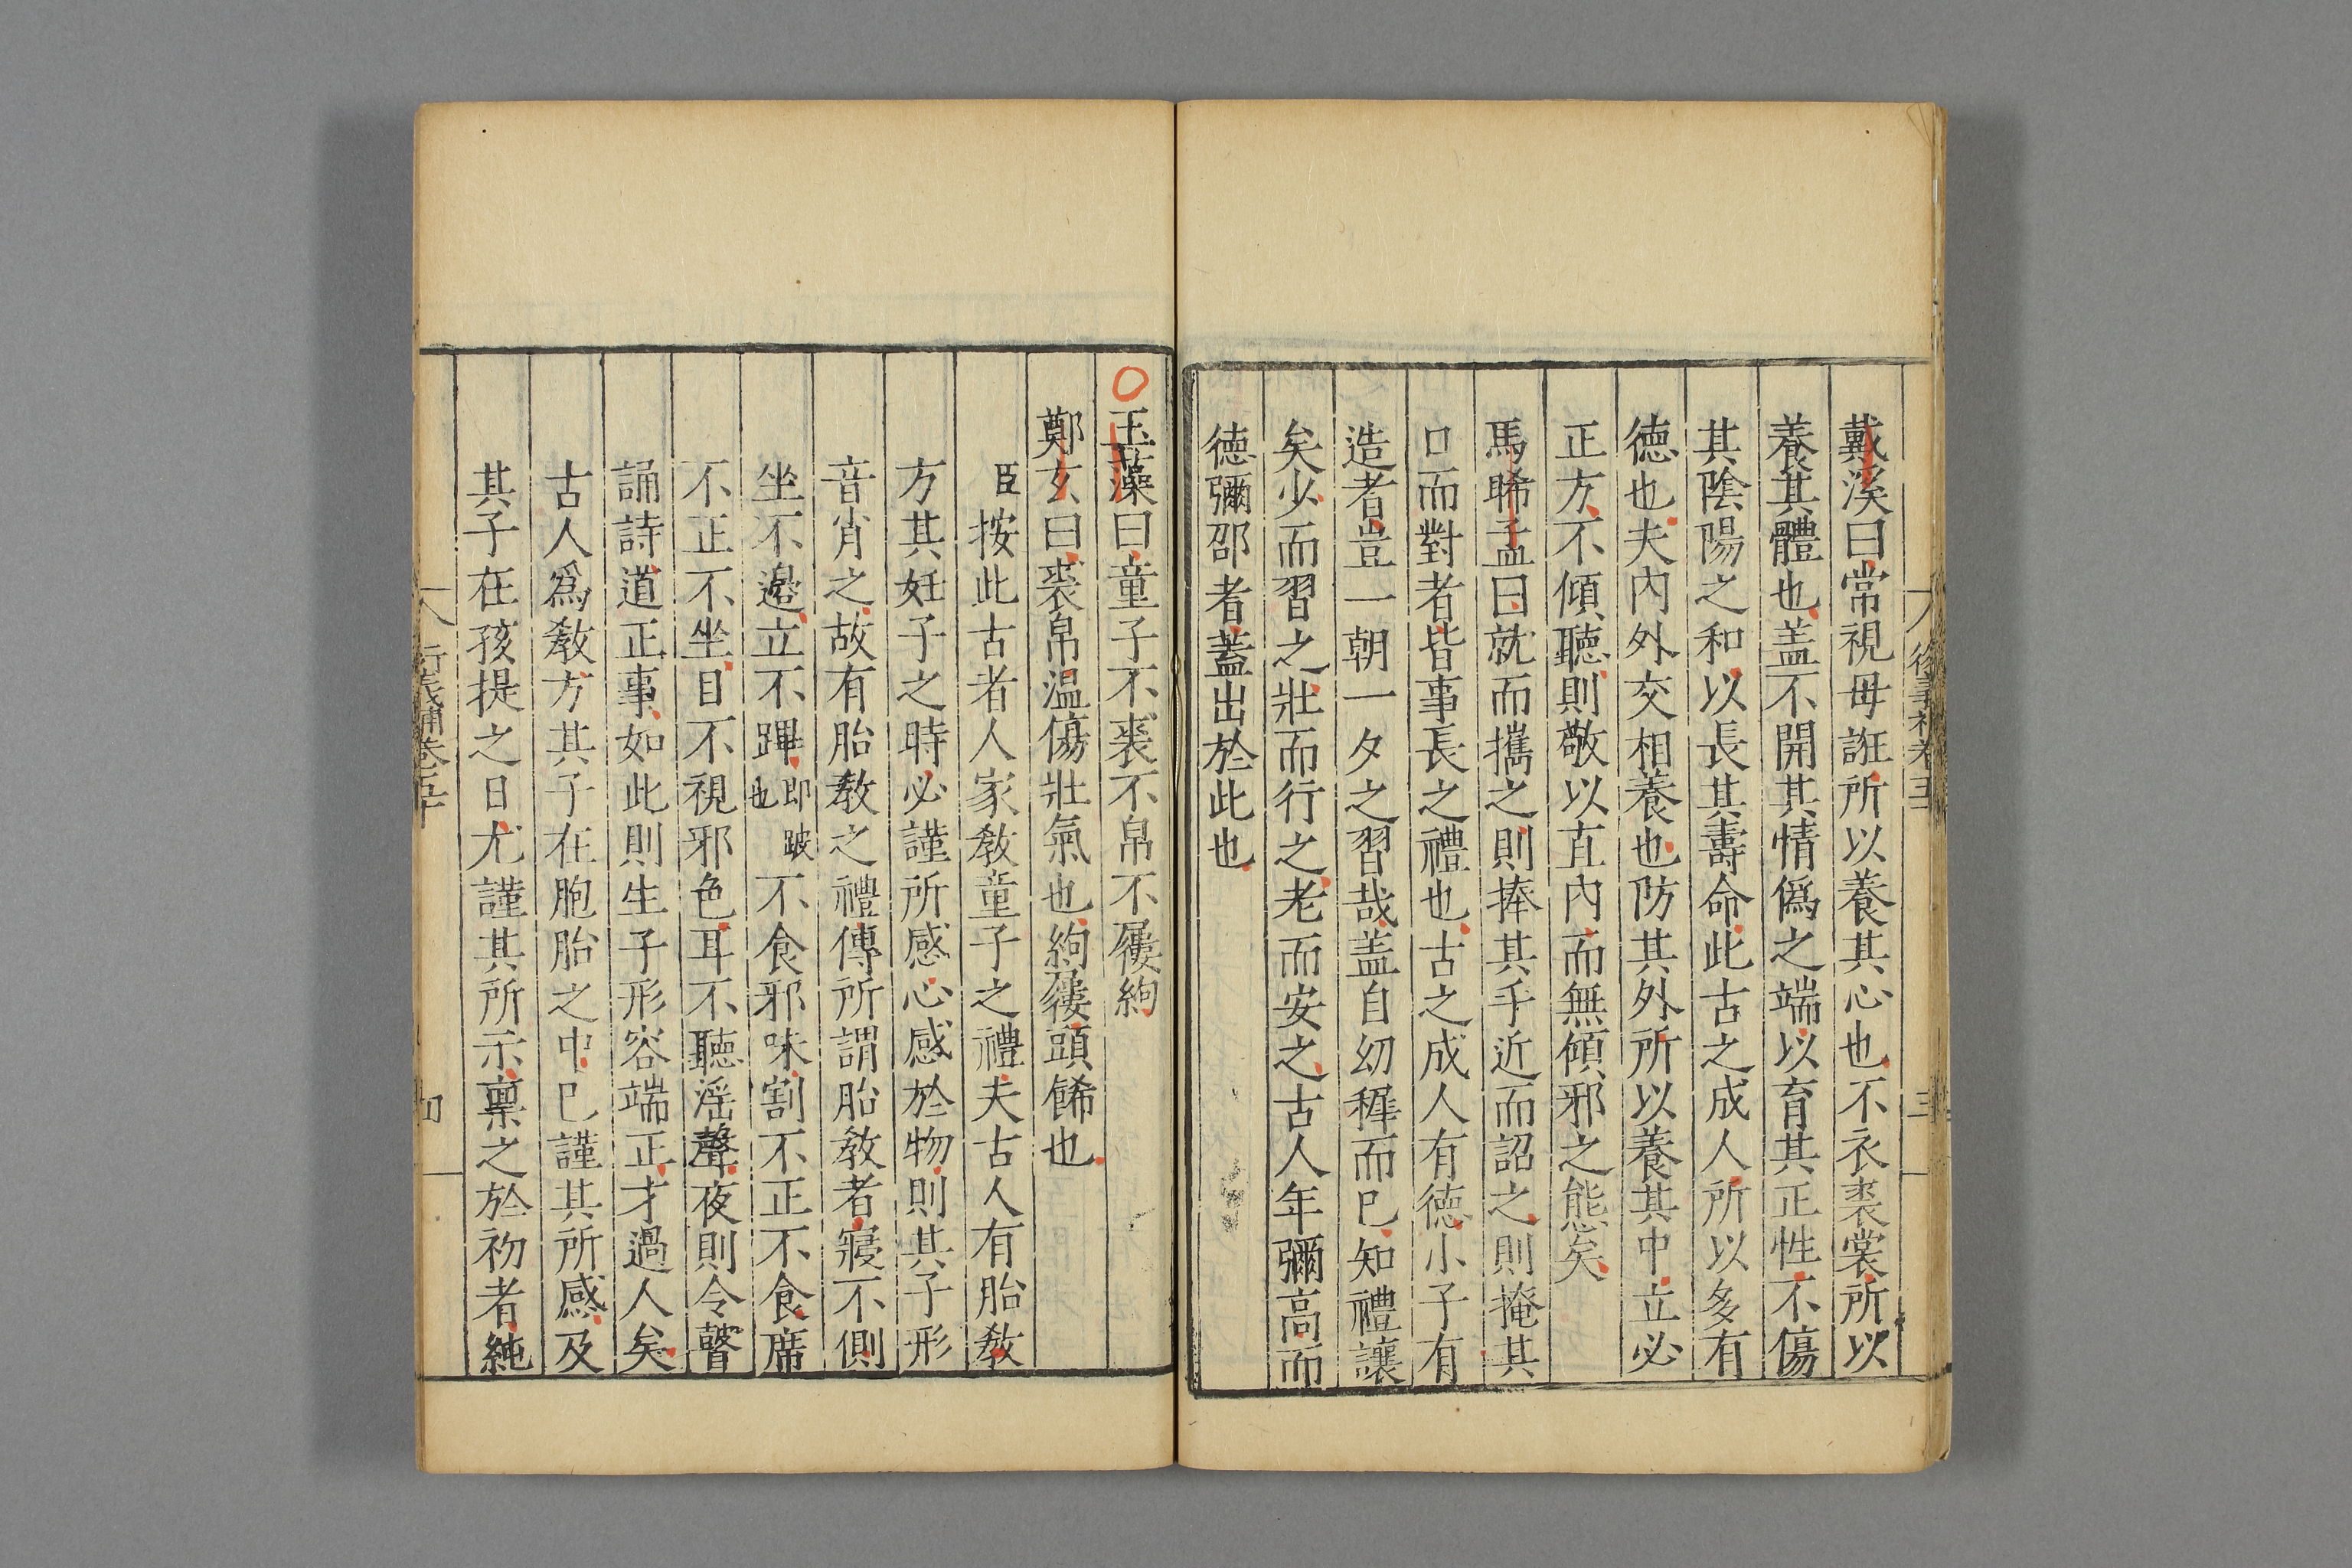 戴溪曰常視毋誑所以養其心也不衣裘裳所以
養其體也盖不開其情僞之端以育其正性不傷
其陰陽之和以長其壽命此古之成人所以多有
德也夫內外交相養也防其外所以養其中立必
正方不傾聽則敬以直內而無傾邪之態矣
馬晞孟曰就而攜之則捧其手近而詔之則掩其
口而對者皆事長之禮也古之成人有德小子有
造者豈一朝一夕之習哉盖自幼穉而已知禮讓
矣少而習之壯而行之老而安之古人年彌高而
德彌邵者蓋出於此也
玉藻曰童子不裘不帛不屨絇
鄭玄曰裘帛温傷壯氣也絇屨頭餙也
臣按此古者人家敎童子之禮夫古人有胎敎
方其妊子之時必謹所感心感於物則其子形
音肖之故有胎敎之禮傳所謂胎敎者寢不側
坐不邉立不蹕即跛也不食邪味割不正不食席
不正不坐目不視邪色耳不聽滛聲夜則令瞽
誦詩道正事如此則生子形容端正才過人矣
古人爲敎方其子在胞胎之中已謹其所感及
其子在孩提之日尤謹其所示禀之於初者純
衍義補卷五十
四